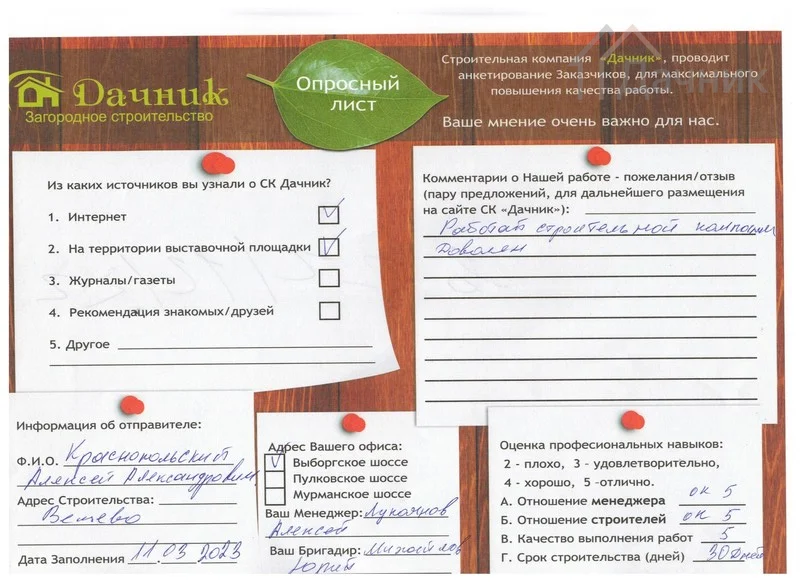 Дачник
Загородное строительство
Опросный
лист
Строительная компания «Дачник», проводит
анкетирование Заказчиков, для максимального
повышения качества работы.
Ваше мнение очень важно для нас.
Дачник
Из каких источников вы узнали о СК Дачник?
1. Интернет
2. На территории выставочной площадки
3. Журналы/газеты
4. Рекомендация знакомых/друзей
5. Другое
Комментарии о Нашей работе - пожелания/отзыв
(пару предложений, для дальнейшего размещения
на сайте СК «Дачник»):
Работой строительной компании
доволен
Информация об отправителе:
Ф.И.О. Краснопольский
Алексей Александрович
Адрес Строительства:
Вещево
Дата Заполнения 11.03 2023
Адрес Вашего офиса:
Выборгское шоссе
Пулковское шоссе
Мурманское шоссе
Ваш Менеджер:
Алексей
Ваш Бригадир: Михайлов
Юрий
Оценка професиональных навыков:
2 - плохо, 3 - удовлетворительно,
4 - хорошо, 5 -отлично.
А. Отношение менеджера ок 5
Б. Отношение строителей ок 5
В. Качество выполнения работ 5
Г. Срок строительства (дней) 30 дней